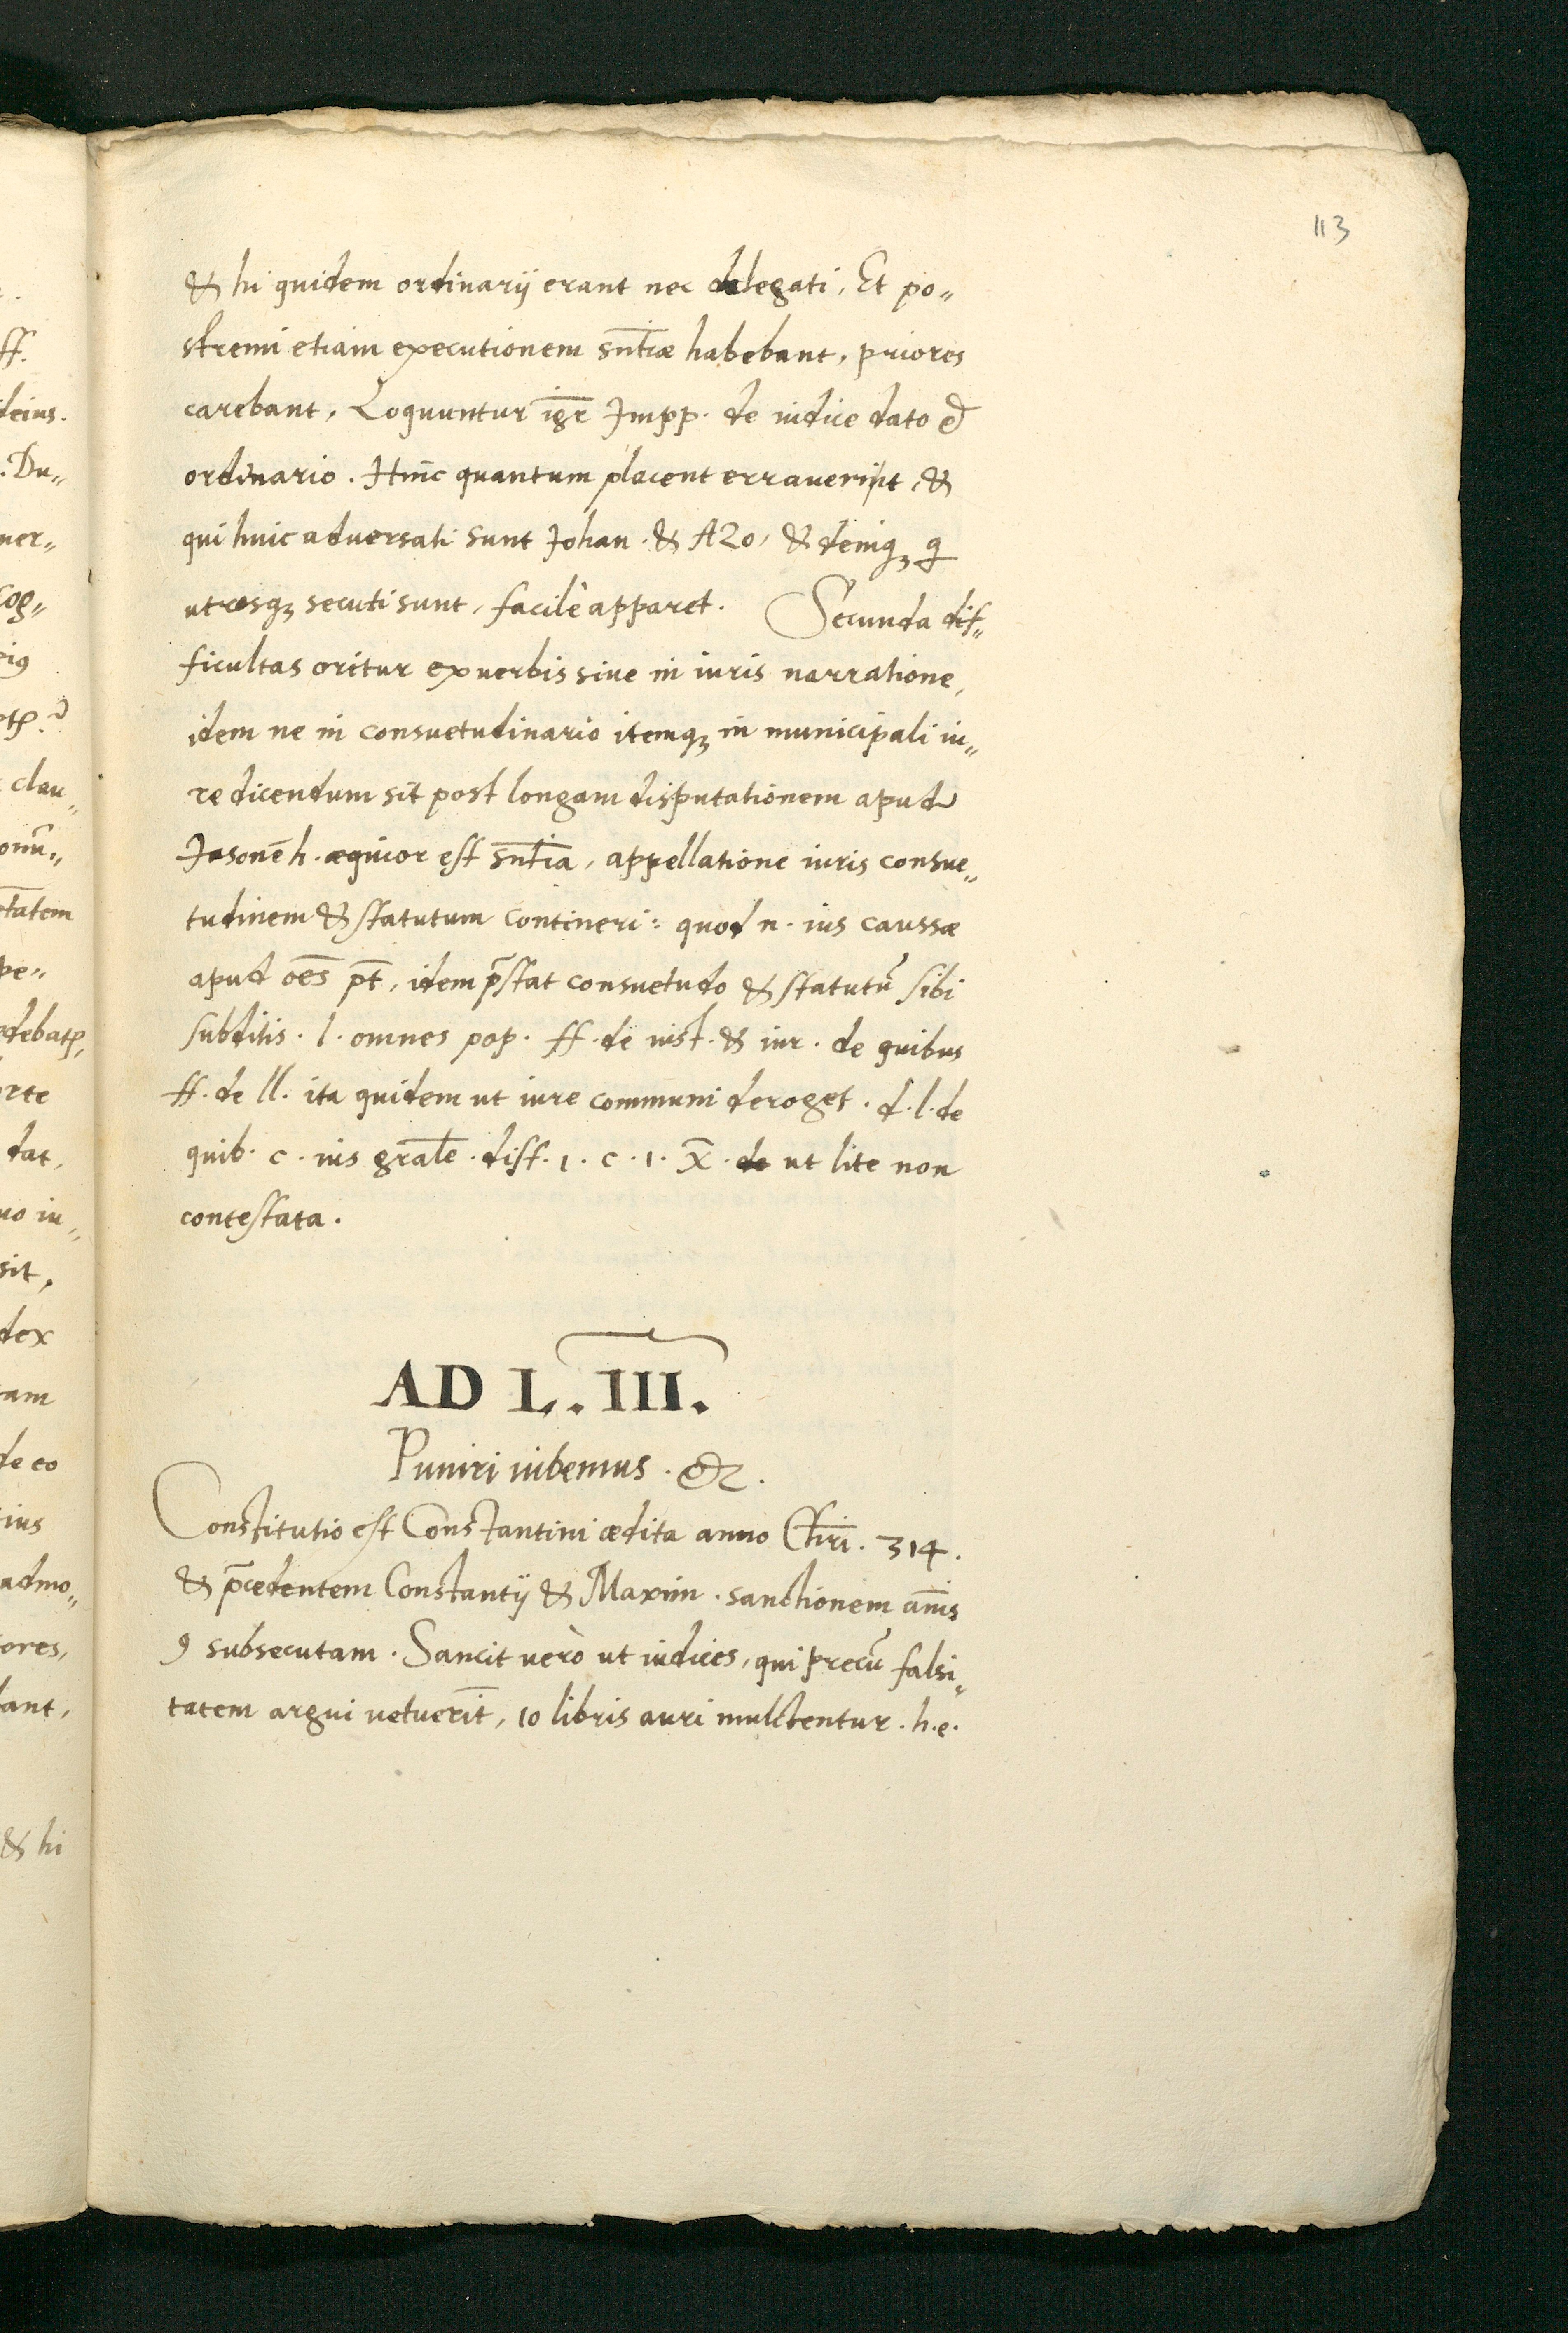 113
& hi quidem ordinarij erant nec delegati, Et po„
stremi etiam executionem snt̄iæ habebant, priores
carebant, Loquuntur igr̄ Impp. de iudice dato &
ordinario. Hinc quantum placent erraverint, &
qui huic adversati sunt Johan. & Azo, & deniqꝫ q
utrosqꝫ secuti sunt, facilè apparet. Secunda dif„
ficultas oritur ex verbis sive in iuris narratione,
idem ne in consuetudinario itemqꝫ in municipali iu„
re dicendum sit post longam disputationem apud
Jasonē h. æquior est snt̄ia, appellatione iuris consue„
tudinem & statutum contineri: quod n. ius caussæ
apud oēs pt̄, idem p̄stat consuetudo & statutū sibi
subditis. l. omnes pop. ff. de iust. & iur. de quibus
ff. de ll. ita quidem ut iure communi deroget. d. l. de
quib. c. ius gral̄e. dist. 1. c. 1. X̄. de ut lite non
contestata.
AD L. III.
Puniri iubemus. &c.
Constitutio est Constantini ædita anno Chr̄i. 314.
& p̄cedentem Constantij & Maxim. sanctionem an̄is
9 subsecutam. Sancit verò ut iudices, qui precū falsi„
tatem argui vetuerīt, 10 libris auri mulctentur. h. e.
ff.
deius.
. Du„
ner„
cog„
clau„
onū„
pe„
dat,
uo iu„
sit,
dex
tam
de eo
admo„
tores,
dant,
& hi